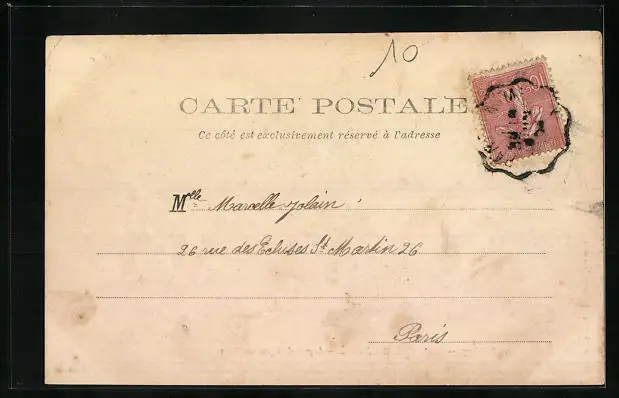 10
CARTE POSTALE
Ce côté est exclusivement réservé à l'adresse
Mlle Marcelle Jolain
26 rue des Ecluses St Martin 26
Paris